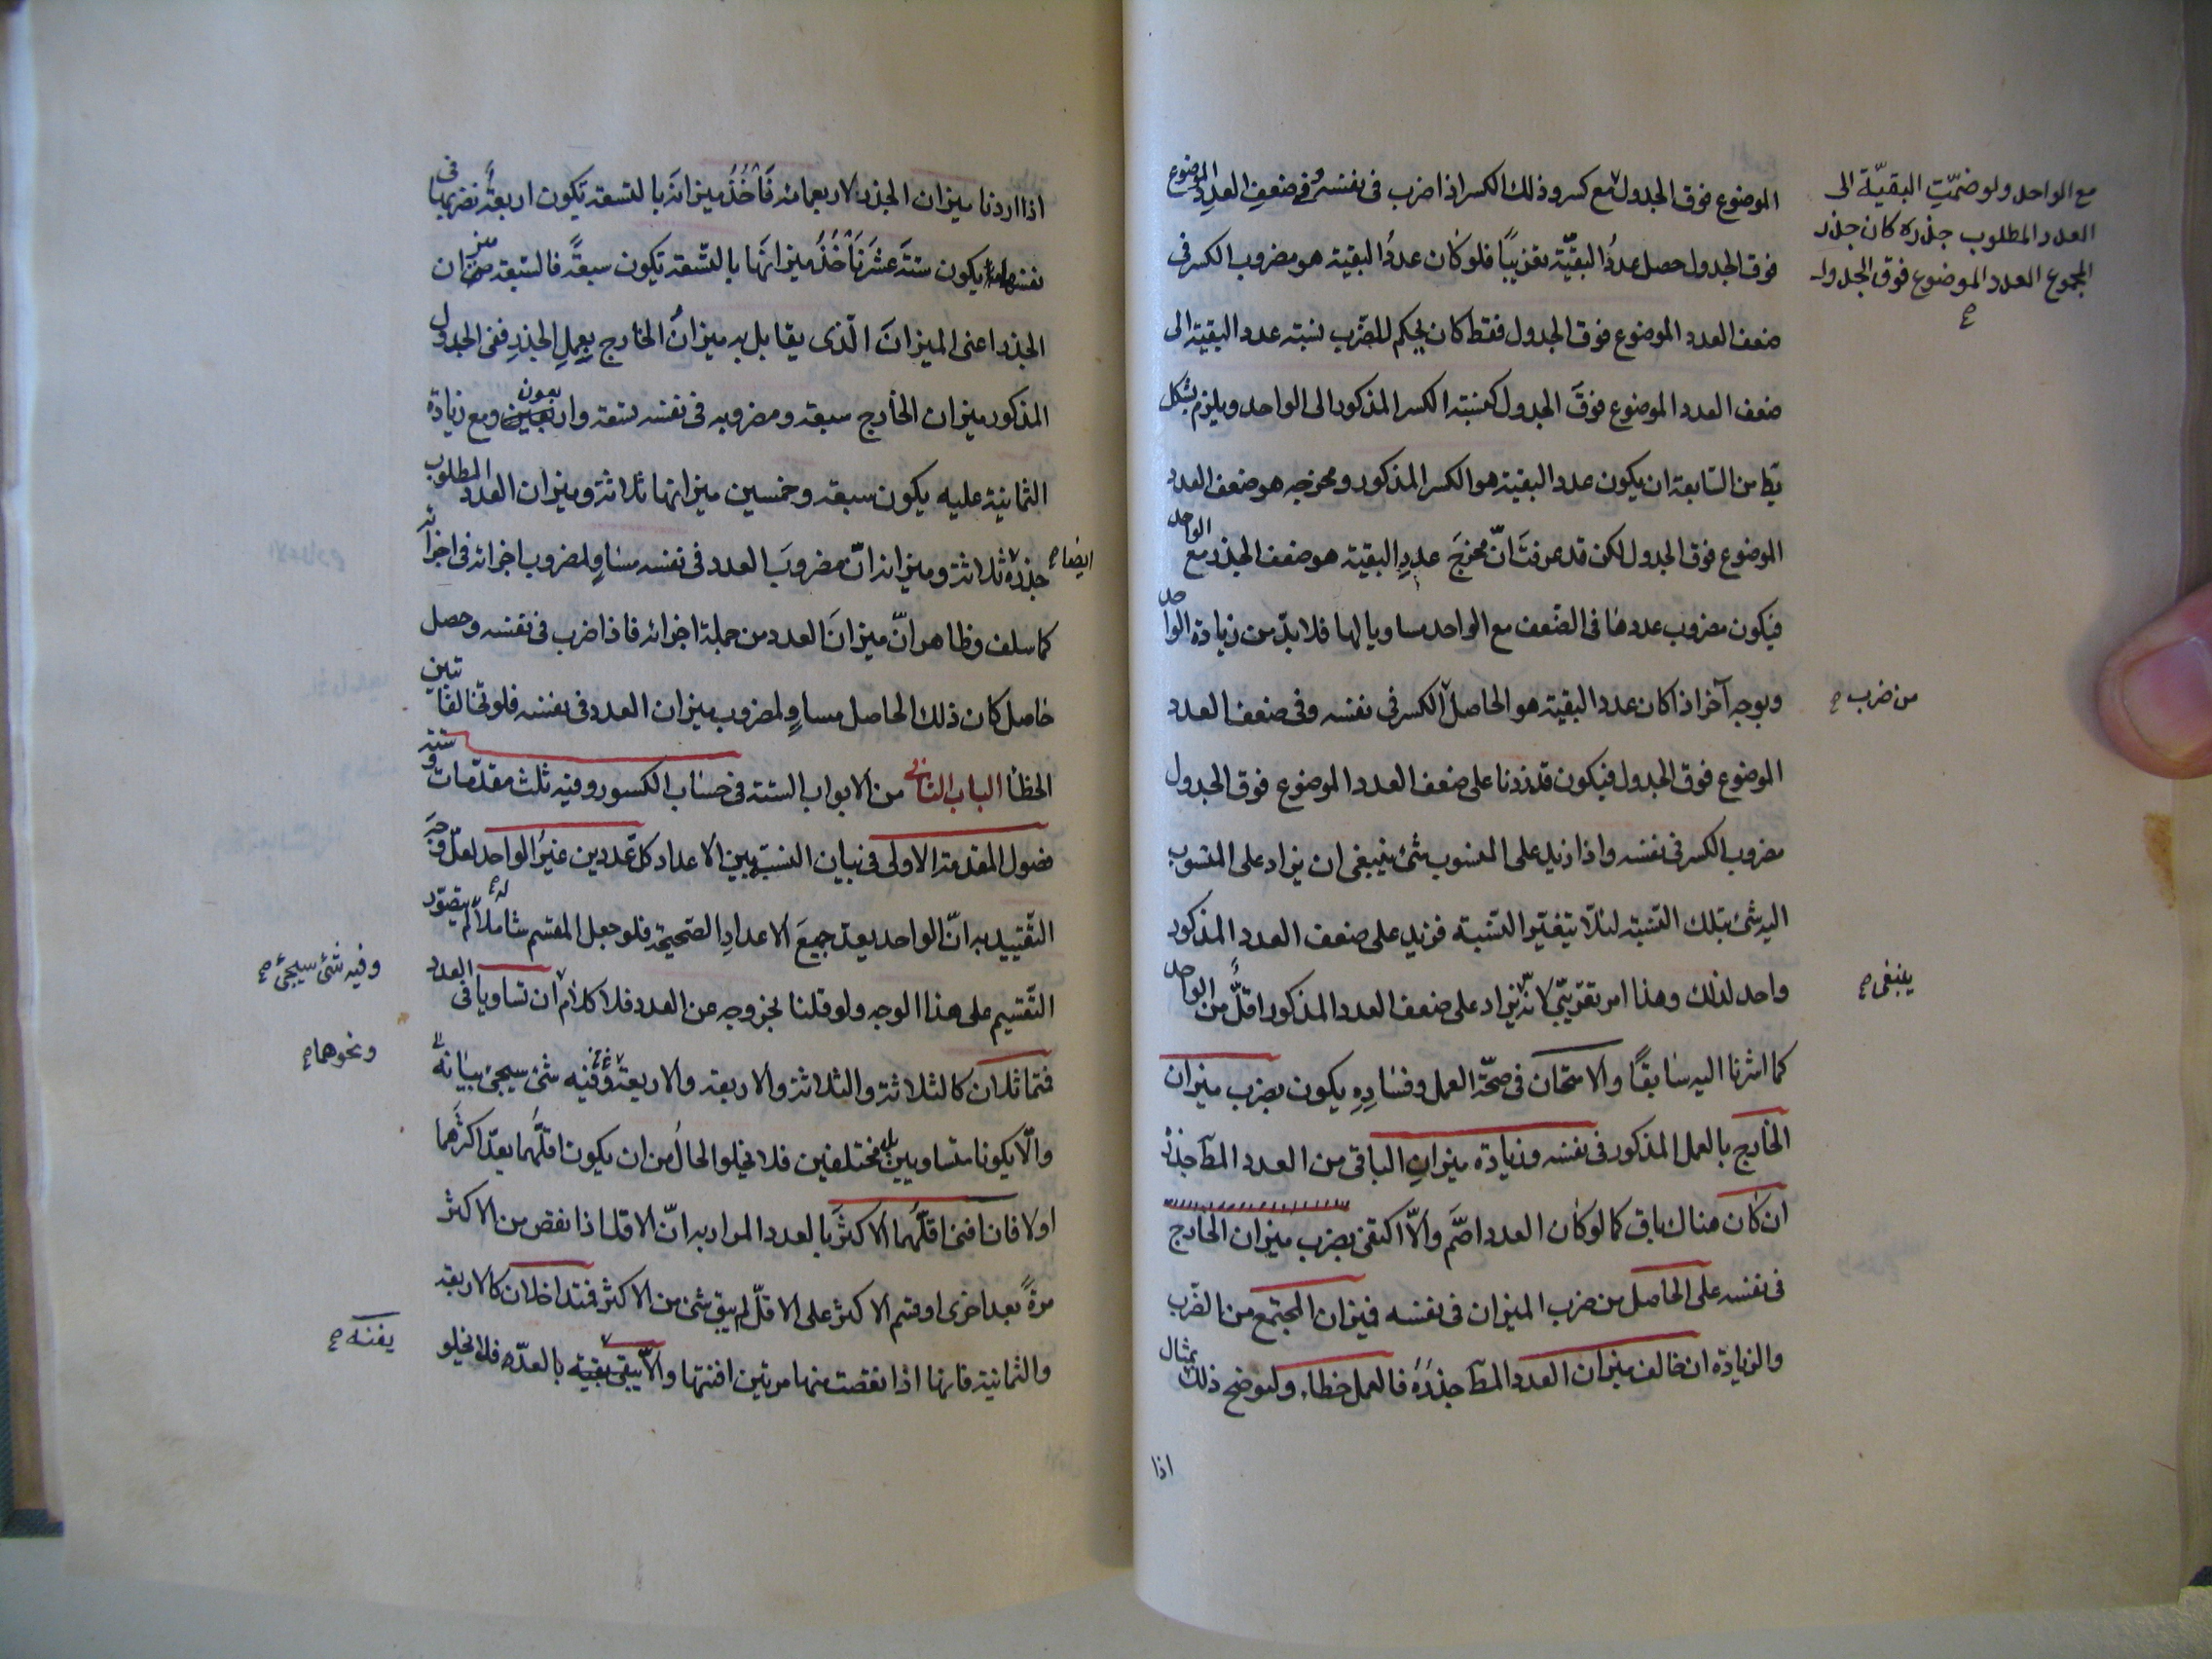 الموضوع فوق الجدول مع كسر وذلك الكسر اذا ضرب فى نفسه وفى ضعف العدد الموضوع
فوق الجدول حصل عدد البقيّة تقريبًا فلو كان عدد البقية هو مضروب الكسر فى
ضعف العدد الموضوع فوق الجدول فقط كان بحكم الضرب نسبته عدد البقية الى
ضعف العدد الموضوع فوقَ الجدول كنسبته الكسر المذكور الى الواحد ويلزم بشكل
يط من السّابعة ان يكون عدد البقية هو الكسر المذكور ومخرجه هو ضعف العدد
الموضوع فوق الجدول لكن قد عرفتَ انّ مخرَجَ عددِ البقية هو ضعف الجذر مع الواحد
فيكون مضروب عددها فى الضّعف مع الواحد مساويا لها فلا بدّ من زيادة الواحد
وبوجه آخر اذا كان عدد البقية هو الحاصل الكسر فى نفسه وفى ضعف العدد
الموضوع فوق الجدول فيكون قد زدنا على ضعف العدد الموضوع فوق الجدول
مضروب الكسر فى نفسه واذا زيد على المنسوب شئ ينبغى ان يزاد على المنسوب
اليه شئ بتلك النّسبة لئلّا يتغيّر النّسبة فزيد على ضعف العدد المذكور
واحد لذلك وهذا امر تقريبّى لانّه يزاد على ضعف العدد المذكور اقلُّ من الواحد
كما اشرنا اليه سابقًا والامتحان فى صحّة العمل وفسادِهِ يكون بضرب ميزان
الخارج بالعمل المذكور فى نفسه وزيادة ميزانِ الباقى من العدد المط جذرُه
ان كان هناك باق كما لو كان العدد اصّم والّا اكتفى بضرب ميزان الخارج
فى نفسه على الحاصل من ضرب الميزان فى نفسه فميزان المجتمع من الضّرب
والزيادة ان خالف ميزان العدد المط جذرُهُ فالعمل خطاء ولنوضح ذلك بمثال
اذا
مع الواحد ولو ضمّتِ البقيّة الى
العدد المطلوب جذره كان جذر
المجموع العدد الموضوع فوق الجدول
من ضرب
ينبغى
اذا اردنا ميزان الجذر لاربعمائة فَنَأخُذُ ميزانَه بالتسعة يكون اربعةً نضربها فى
نفسها يكون ستَّةَ عشَرَ نَأخُذُ ميزانَها بالتّسعة يكون سبعةً فالسبعة ميزان
الجذر اعنى الميزانَ الّذى يقابل به ميزانُ الخارج بعملِ الجذرِ ففى الجدول
المذكور ميزان الخارج سبعة ومضروبه فى نفسه تسعة واربعون ومع زيادة
الثمانية عليه يكون سبعة وخمسين ميزانها ثلاثة وميزان العدد المطلوب
جذره ثلاثة وميزانه انّ مضروبَ العدد فى نفسه مساوٍ لمضروب اجزائه فى اجزائه
كما سلف وظاهر انّ ميزانَ العدد من جملة اجزائه فاذا ضرب فى نفسه وحصل
حاصل كان ذلك الحاصل مساوٍ لمضروب ميزان العدد فى نفسه فلو تخالفا تبين
الخطأ الباب الثانى من الابواب الستة فى حساب الكسور وفيه ثلث مقدّمات وستة
فصول المقدمة الاولى فى بيان النسبة بين الاعداد كلّ عددين غيرُ الواحد لعلّ وجهَ
التّقييد به انّ الواحد يعدّ جميعَ الاعدادِ الصّحيحة فلو جعل المقسم شاملًا له لم يتصوّر
التّقسيم على هذا الوجه ولو قلنا بخروجه عن العدد فلا كلام ان تساويا فى العدد
فتماثلان كالثلاثة والثلاثة والاربعة والاربعة وفيه شئ سيجئ بيانه
والّا يكونا متساويين بل مختلفين فلا يخلو الحالُ من ان يكون اقلُّهما يعدّ اكثرَهما
اولا فان افنى اقلّهما الاكثرَ بالعدد المراد به انّ الاقل اذا نقص من الاكثر
مرةً بعد اخرى او قسم الاكثر على الاقلّ لم يبق شئ من الاكثر فتداخلان كالاربعة
والثمانية فانها اذا نقصت منها مرتين افنتها والّا يبقى بقيته بالعدّ فلا يخلو
ايضا
وفيه شئ سيجئ
ونحوهما
يفنه